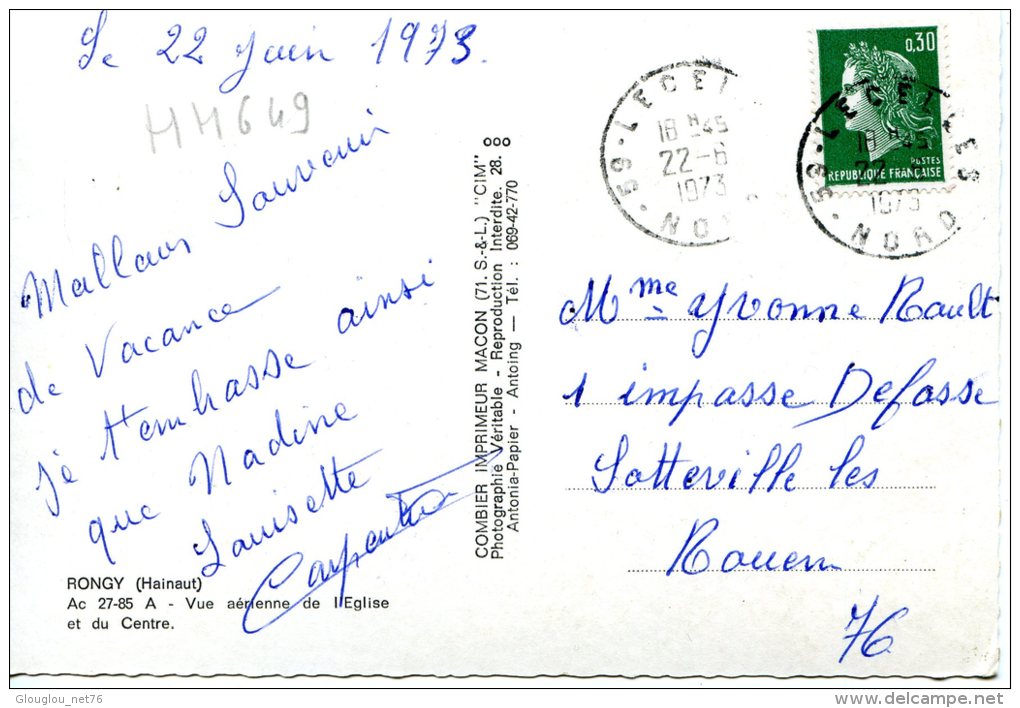 Le 22 Juin 1973.
MM649
Mallaur Souvenir
de Vacance
je t'embrasse ainsi
que Nadine
Louisette
Carpentier
RONGY (Hainaut)
Ac 27-85 A - Vue aérienne de l'Eglise
et du Centre.
COMBIER IMPRIMEUR MACON (71. S.-&-L.) "CIM"
Photographie Véritable - Reproduction Interdite. 28.
Antonia-Papier - Antoing — Tél. : 069-42-770
0,30
POSTES
REPUBLIQUE FRANÇAISE
59-LECEL
18H45
22-6
1973
NOR
59-LECELLES
18H45
22
1973
NORD
Mme Yvonne Rault
1 impasse Defosse
Sotteville les
Rouen
76
Glouglou_net76
delcampe.net